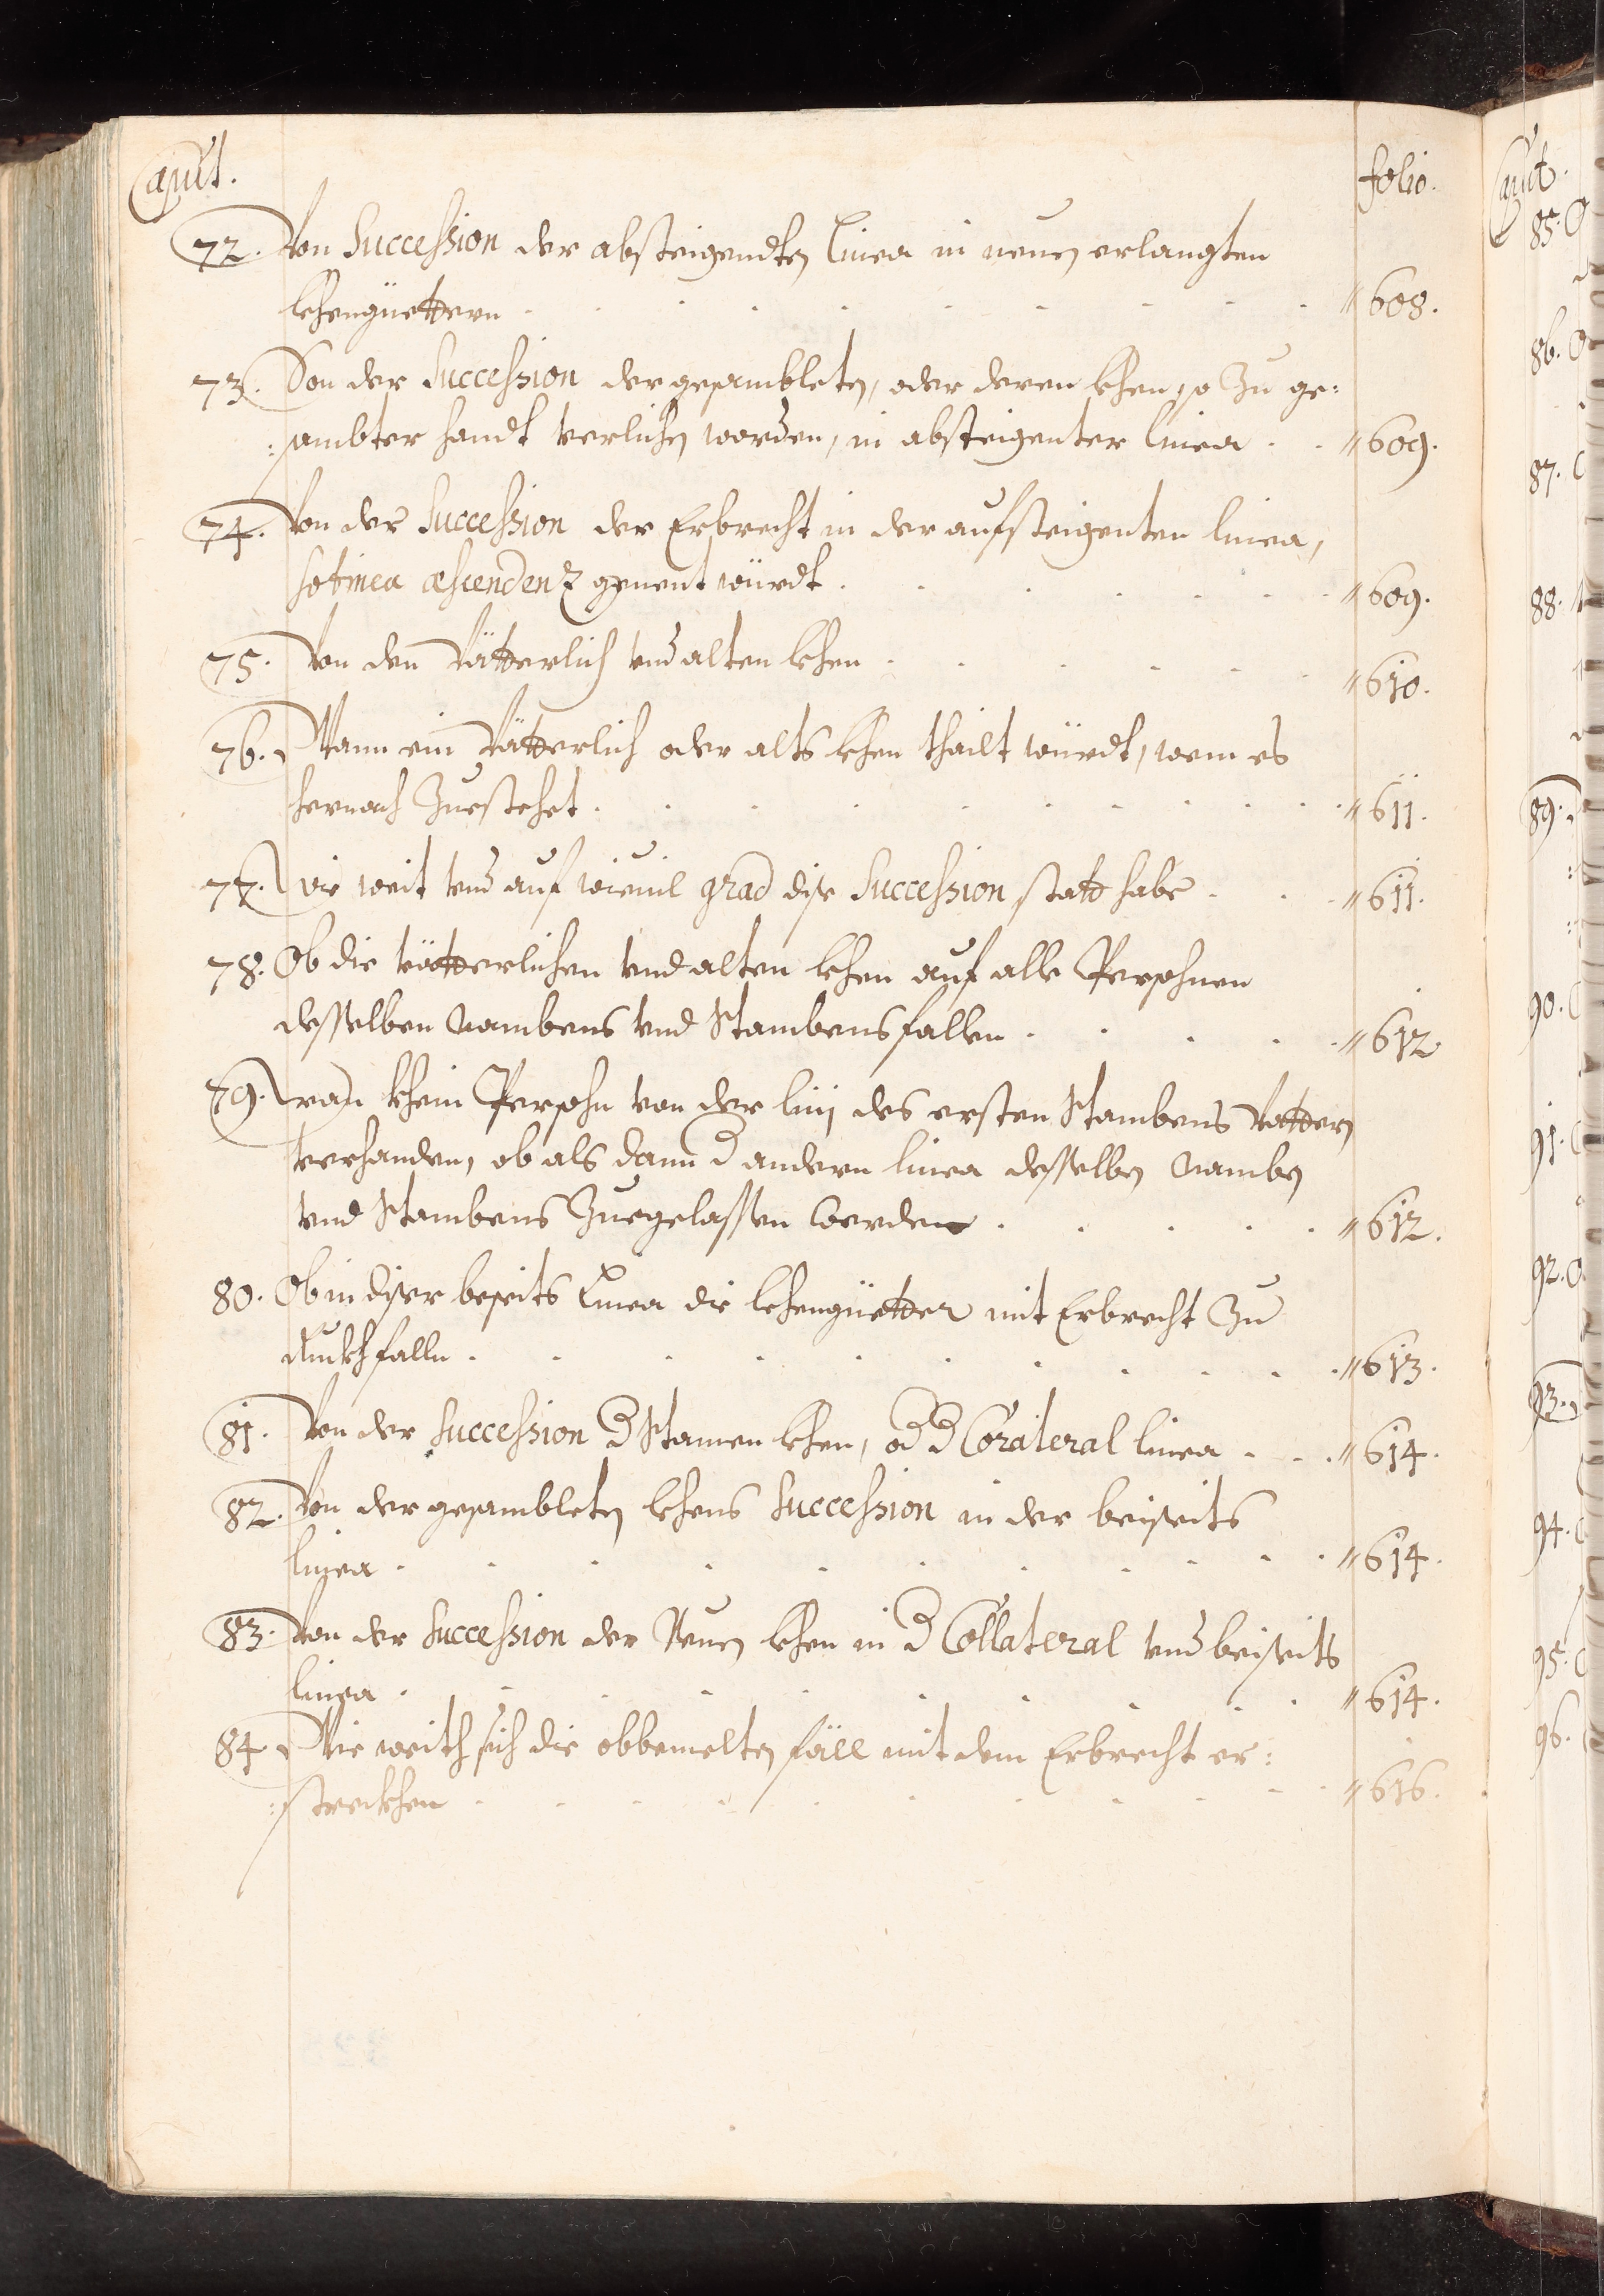 Caput.
folio.
72. Von Succession der absteigendten Linea in neuen erlangten
lehengüettern . . . . . . . . . "608.
73. Von der Succession der gesambleten, oder deren lehen, so Zu ge:
:sambter handt verlichen worden, in absteigenter linea . . "609.
74. Von der Succession der Erbrecht in der aufsteigenten linea,
so linea ascendenz genent würdt . . . . . . "609.
75. Von den Vätterlich vnd alten lehen . . . . . "610.
76. Wann ein Vätterlich oder alts lehen thailt würdt, wem es
hernach Zuestehet . . . . . . . . . "611.
77. wie weit vnd auf wieuil grad dise Succession statt habe . . . "611.
78. Ob die vätterlichen vnd alten lehen auf alle Persohnen
desselben Nambens vnd Stambens fallen . . . . "612
79. wan khein Persohn von der linj des ersten Stambens Vattern
verhanden, ob als dann d andern linea desselben Namben
vnd Stambens Zuegelassen werden . . . . . "612.
80. Ob in diser beseits Linea die lehengüetter mit Erbrecht Zu
ruckh falln . . . . . . . . . . "613.
81. Von der Succession d Stamen lehen, od d Corateral linea . . . "614.
82. Von der gesambleten lehens Succession in der beiseits
linea . . . . . . . . . . "614.
83. Von der Succession der Neuen lehen in d Collateral vnd beiseits
linea . . . . . . . . . "614.
84. Wie weith sich die obbemelten fäll mit dem Erbrecht er:
:streckhen . . . . . . . . . . "616.
Caput.
85.
86.
87.
88.
89.
90.
91.
92.
93.
94.
95.
96.